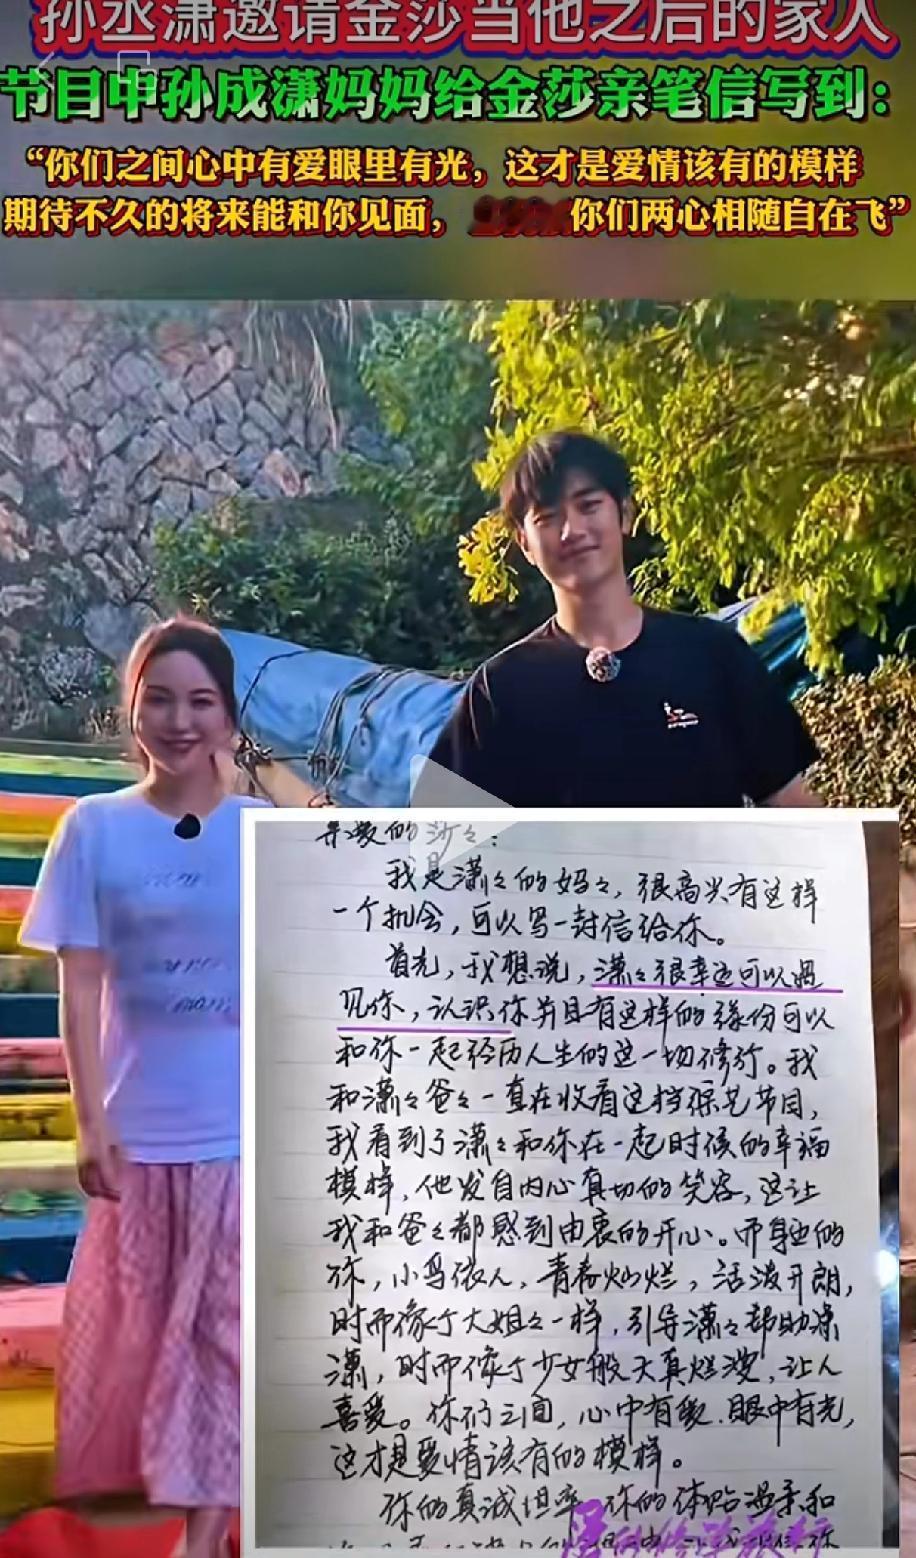 孙丞潇邀请金莎当他之后的家人
节目中孙成潇妈妈给金莎亲笔信写到：
“你们之间心中有爱眼里有光，这才是爱情该有的模样
期待不久的将来能和你见面， 你们两心相随自在飞”
亲爱的莎々：
我是潇々的妈々，很高兴有这样
一个机会，可以写一封信给你。
首先，我想说，潇々很幸运可以遇
见你，认识你并且有这样的缘份可以
和你一起经历人生的这一切修行。我
和潇々爸々一直在收看这档综艺节目，
我看到了潇々和你在一起时候的幸福
模样，他发自内心真切的笑容，这让
我和爸々都感到由衷的开心。而身边的
你，小鸟依人，青春灿烂，活泼开朗，
时而像个大姐々一样，引导潇々帮助潇
潇，时而像个少女般天真烂漫，让人
喜爱。你们之间，心中有爱，眼中有光，
这才是爱情该有的模样。
你的真诚坦率，你的体贴温柔和